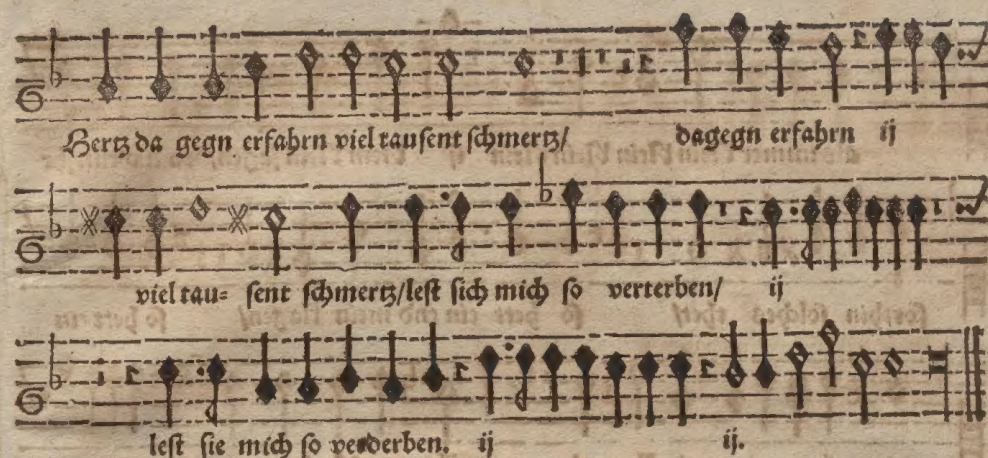 Hertz da gegn erfahrn viel tausent schmertz/ dagegn erfahrn ij
viel tau= sent schmertz/lest sich mich so verterben/ ij
lest sie mich so verderben. ij ij.